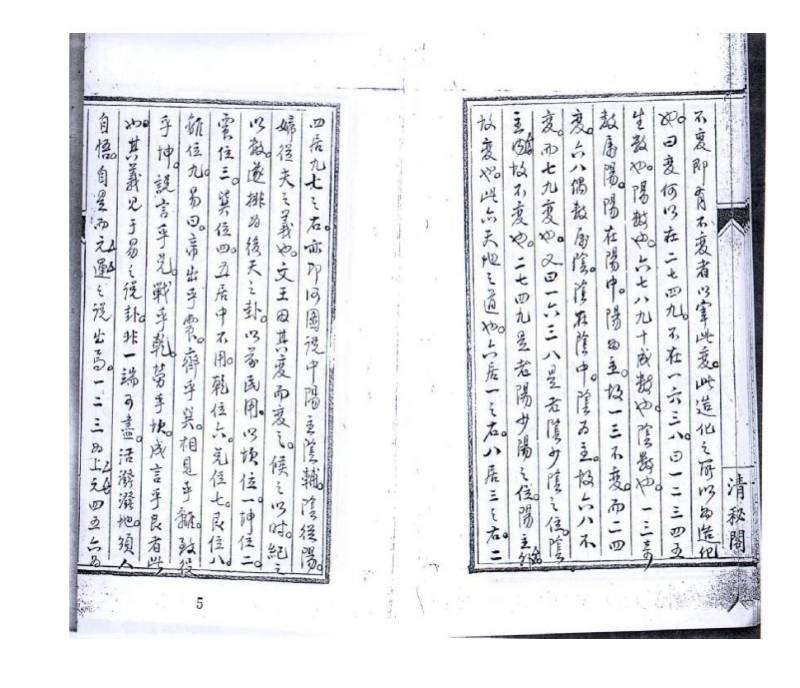 不變即有不變者以宰此變此造化之所以為造化
也曰變何以在二七四九不在一六三八曰一二三四五
生數也陽數也六七八九十成數也陰數也一三奇
數屬陽陽在陽中陽為主故一三不變而二四
變六八偶數屬陰陰在陰中陰為主故六八不
變而七九變也又曰一六三八是老陰少陰之位陰
主故不變也二七四九是老陽少陽之位陽主
故變也此六天地之道也六居一之右八居三之右二
清秘閣
四居九七之右亦即河圖說中陽主陰輔陰從陽
婦從夫之義也文王因其變而變之候之以時紀之
以數遂排為後天之卦以前民用以坎位一坤位二
震位三巽位四五居中不用乾位六兌位七艮位八
離位九易曰帝出乎震齊乎巽相見乎離致役
乎坤說言乎兌戰乎乾勞乎坎成言乎艮者此
也其義見于易之說卦非一端可盡活潑潑地須人
自悟自是而元運之說出焉一二三為上元四五六為
5